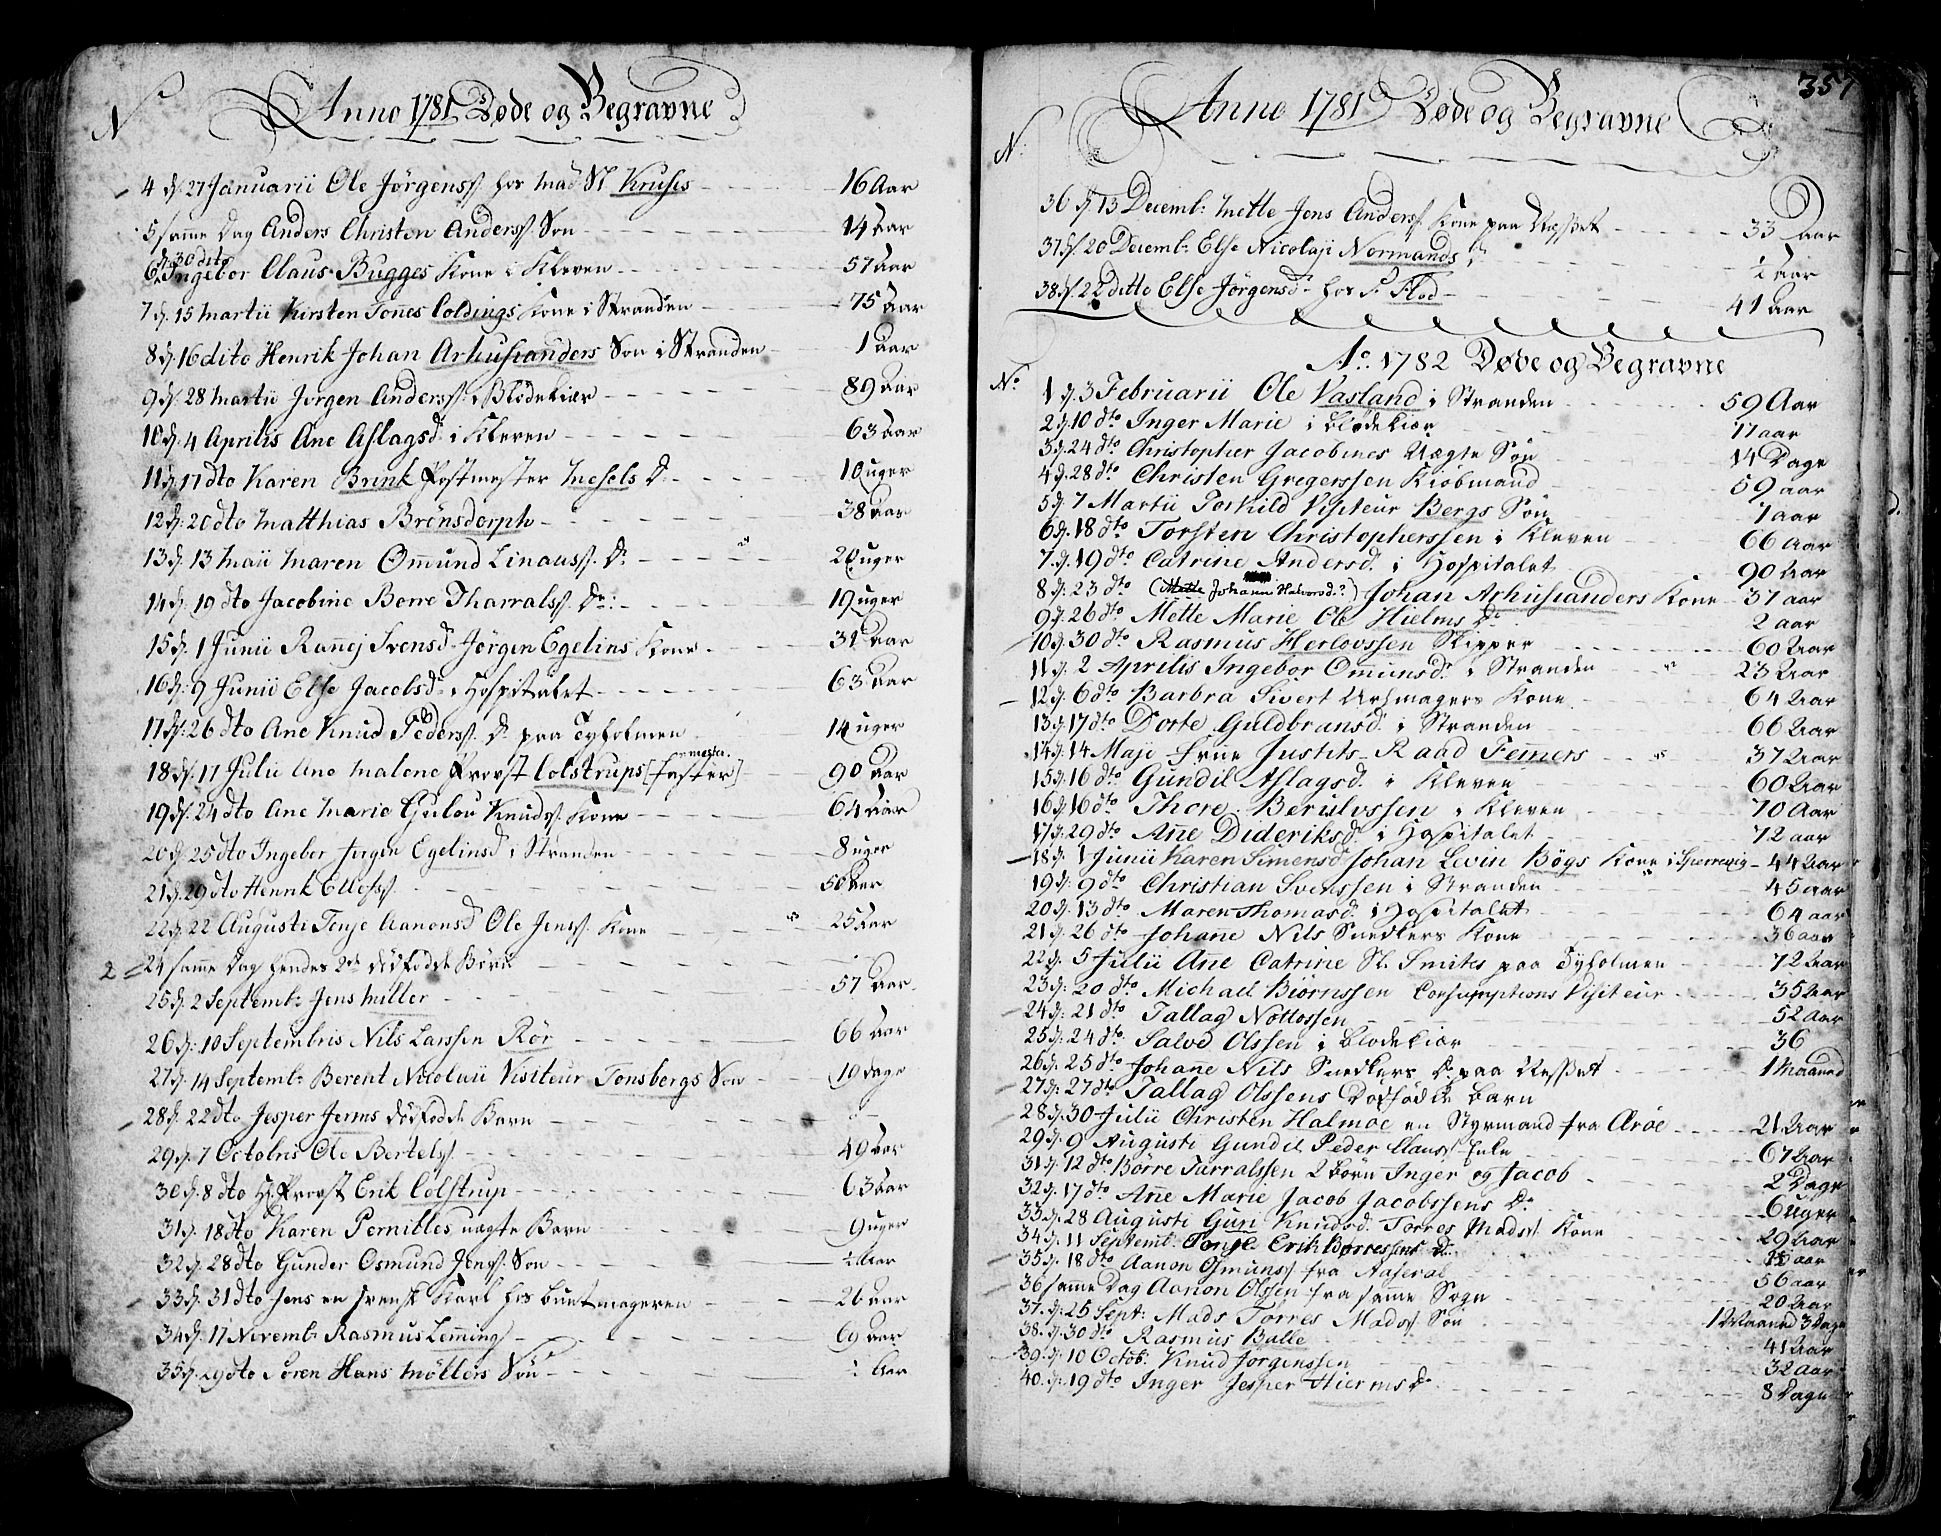 No
Anno 1781 Døde og Begravne
4 d. 27 Januarii Ole Jörgenss. hos Mad Sl Kruses 16 Aar
5 samme Dag Anders Christen Anderss. Søn 14 Aar
d. 30 dito
6 Ingebor Claus Bugges Kone i Kleven 57 Aar
7 d. 15 Martii Kirsten Tönnes Coldings Kone i Stranden 75 Aar
8 d. 16 dito Henrik Johan Arhusianders Søn i Stranden 1 Aar
9 d. 28 Martii Jørgen Anderss. i Blödekiær 89 Aar
10 d. 4 Aprilis Ane Aslagsd. i Kleven 63 Aar
11 d. 17 dto Karen Brink Postmester Mesels D. 10 uger
12 d. 20 dto Matthias Brönsdorph 38 Aar
13 d. 13 Maii Maren Ommund Linauss. Dr. 20 uger
14 d. 19 dto Jacobine Borre Tharralss. Dr. 19 uger
15 d. 1 Junii Rannej Svensd. Jörgen Egelins Kone 31 Aar
16 d. 9 Junii Else Jacobsd. i Hospitalet 63 Aar
17 d. 26 dto Ane Knud Pederss. D. paa Tyholmen 14 uger
18 d. 17 Julii Ane Malene Provst Colstrups [Faster] 90 Aar
19 d. 24 dto Ane Marie Gulou Knudss. Kone 64 Aar
20 d. 25 dto Ingebor Jørgen Egelinsd. i Stranden 8 uger
21 d. 29 dto Henrik Ellefss. 50 Aar
22 d. 22 Augusti Tonje Aanonsd. Ole Jenss. Kone 25 Aar
2 24 samme Dag hendes 2de dödfödde Børn
25 d. 2 Septemb: Jens Miller 57 Aar
26 d. 10 Septembris Nils Larssen Rör 66 Aar
27 d. 14 Septemb: Berent Nicolaii Visiteur Tonsbergs Søn 10 dage
28 d. 22 dto Jesper Jerms dödfödde Barn
29 d. 7 Octobris Ole Bertelss. 49 Aar
30 d. 8 dto H. Provst Erik Colstrup 63 Aar
31 d. 18 dto Karen Pernilles uægte Barn 9 uger
32 d. 28 dto Gunder Osmund Jenss. Søn ½ Aar
33 d. 31 dto Jens en svensk Karl hos Buntmageren 26 Aar
34 d. 17 Novemb: Rasmus Lemming 69 Aar
35 d. 29 dto Søren Hans Möllers Søn ½ Aar
357
No
Anno 1781 Døde og Begravne
36 d. 13 Decemb: Mette Jens Anderss. Kone paa Næsset 33 Aar
37 d. 20 Decemb: Else Nicolaji Normands D. ½ Aar
38 d. 22 ditto Else Jörgensd. hos S. Flod 41 Aar
Ao. 1782 Døde og Begravne
No
1 d. 3 Februarii Ole Vasland i Stranden 59 Aar
2 d. 10 dto Inger Marie i Blödekiær 17 aar
3 d. 24 dto Christopher Jacobines Uægte Søn 14 Dage
4 d. 28 dto Christen Gregerssen Kiöbmand 59 aar
5 d. 7 Martii Torkild Visiteur Bergs Søn 1 aar
6 d. 18 dto Torsten Christopherssen i Kleven 66 Aar
7 d. 19 dto Catrine Andersd. i Hospitalet 90 Aar
8 d. 23 dto (Johann Halvorsd.?) Johan Arhusianders Kone 37 aar
9 d. 26 dto Mette Marie Ole Hielms Dr 2 aar
10 d. 30 dto Rasmus Herlovssen Skipper 60 Aar
11 d. 2 Aprilis Ingebor Ommunsd. i Stranden 23 Aar
12 d. 6 dto Barbra Sivert Urhmagers Kone 64 Aar
13 d. 17 dto Dorte Guldbransd. i Stranden 66 Aar
14 d. 14 Maji Frue Justits-Raad Femmers 37 Aar
15 d. 16 dto Gundil Aslagsd. i Kleven 60 Aar
16 d. 16 dto Thore Berulvssen i Kleven 70 Aar
17 d. 29 dto Anne Dideriksd. i Hospitalet 72 aar
18 d. 1 Junii Karen Simensd. Johan Levin Bögs Kone i Sperrevig 44 Aar
19 d. 9 dto Christian Svenssen i Stranden 45 aar
20 d. 13 dto Maren Thomasd. i Hospitalet 64 aar
21 d. 26 dto Johanne Nils Snedkers Kone 36 aar
22 d. 5 Julii Anne Catrine Sl. Smites paa Tyholmen 72 Aar
23 d. 20 dto Michael Biörnssen Consumptions Visiteur 35 Aar
24 d. 21 dto Tallag Nottossen 52 Aar
25 d. 24 dto Salve Olssen i Blödekiær 36
26 d. 25 dto Johanne Nils Snedkers D. paa Næsset 1 Maaned
27 d. 27 dto Tallag Olssens Dødfödde Barn
28 d. 30 Julii Christen Halmøe en Styrmand fra Æröe 21 Aar
29 d. 9 Augusti Gundil Peder Clauss. Enke 67 Aar
31 d. 12 dto Börre Tarralssen 2 børn Inger og Jacob 2 Dage
32 d. 17 dto Anne Marie Jacob Jacobssens D. 6 Uger
33 d. 28 Augusti Guri Knudsd. Torres Madss. Kone 29 Aar
34 d. 11 Septemb. Tonje Erik Börressens D.
35 d. 18 dto Aanon Osmunss. fra Aaseral 56 aar
36 samme Dag Aanon Olssen fra samme Sogn 20 Aar
37. d. 25 Sept: Mads Torres Madss. Søn 1 Maaned 3 Dage
38. d. 30 dto Rasmus Balle 41 Aar
39. d. 10 Octob. Knud Jorgenssen 32 Aar
40. d. 19 dto Inger Jesper Hierms D. 8 Dage